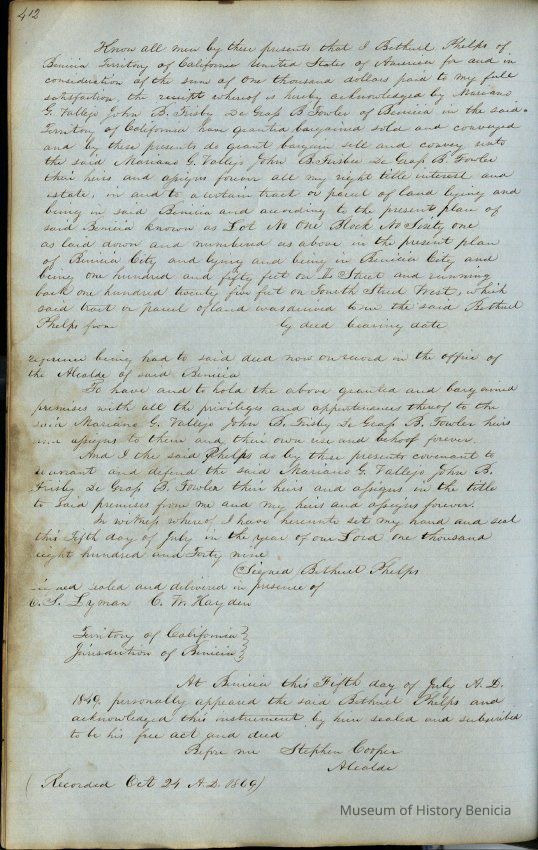 412
Know all men by these presents that I Bethuel Phelps of
Benicia Territory of California United States of America for and in
consideration of the sum of One thousand dollars paid to my full
satisfaction, the receipt whereof is hereby acknowledged by Mariano
G. Vallejo John B. Frisby De Grap B Fowler of Benicia in the said
Territory of California have granted bargained sold and conveyed
and by these presents do grant bargain sell and convey unto
the said Mariano G. Vallejo John B Frisbie De Grap B Fowler
their heirs and assigns forever all my right title interest and
estate, in and to a certain tract or parcel of land lying and
being in said Benicia and according to the present plan of
said Benicia known as Lot No One Block No Sixty one
as laid down and numbered as above in the present plan
of Benicia City and lying and being in Benicia City and
being one hundred and fifty feet on Street and running
back one hundred twenty five feet on Fourth Street West, which
said tract or parcel of land was deeded to me the said Bethuel
Phelps from by deed bearing date
reference being had to said deed now on record in the office of
the Alcalde of said Benicia
To have and to hold the above granted and bargained
premises with all the privileges and appurtenances thereof to the
said Mariano G. Vallejo John B. Frisby De Grap B. Fowler heirs
and assigns to them and their own use and behoof forever.
And I the said Phelps do by these presents covenant to
warrant and defend the said Mariano G. Vallejo John B.
Frisby De Grap B. Fowler their heirs and assigns in the title
to said premises from me and my heirs and assigns forever.
In witness whereof I have hereunto set my hand and seal
this Fifth day of July in the year of our Lord one thousand
eight hundred and Forty nine
(Signed Bethuel Phelps
Signed sealed and delivered in presence of
C. S. Lyman C. W. Hayden
Territory of California }
Jurisdiction of Benicia }
At Benicia this Fifth day of July A.D.
1849, personally appeared the said Bethuel Phelps and
acknowledged this instrument by him sealed and subscribed
to be his free act and deed
Before me Stephen Cooper
Alcalde
(Recorded Oct 24 A.D. 1869)
Museum of History Benicia